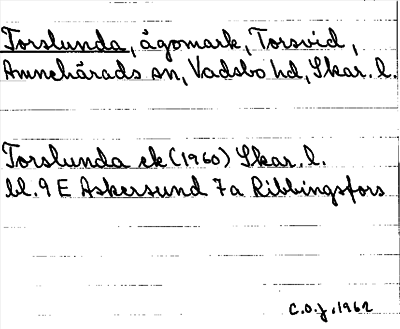 Torslunda, ägomark, Torsvid,
Amnehärads sn, Vadsbo hd, Skar. l.
Torslunda ek (1960) Skar. l.
bl. 9 E Askersund 7a Ribbingsfors
C.O.J. 1962